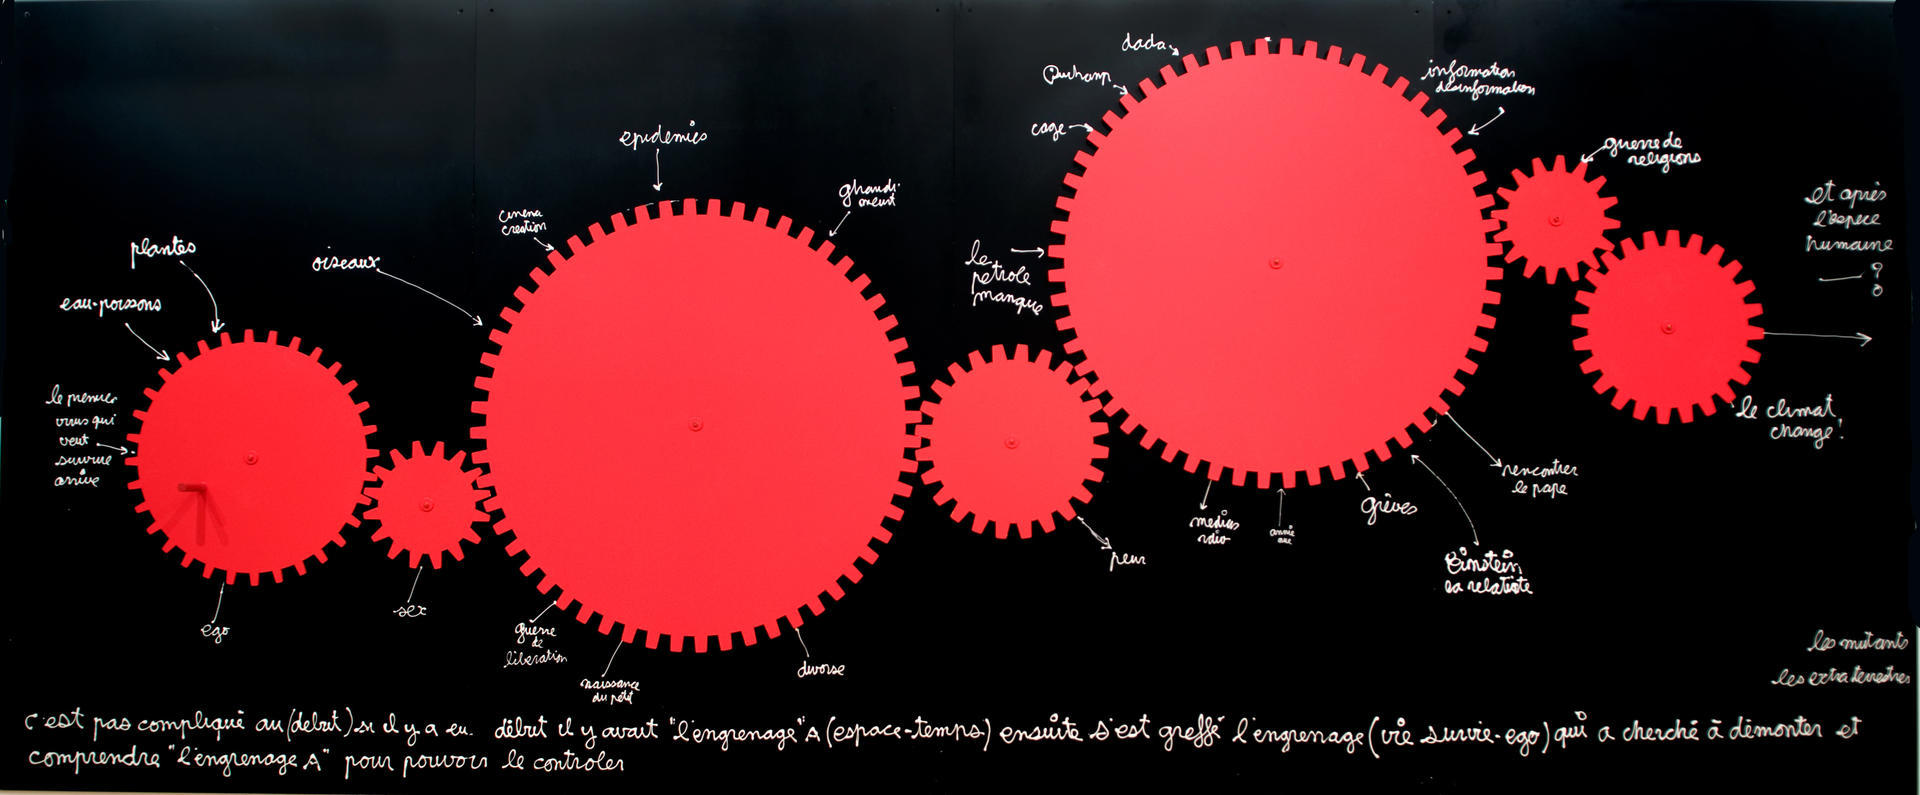 dada
Duchamp
cage
information
desinformation
guerre de
religions
epidemies
ghandi
meurt
cinema
creation
plantes
oiseaux
eau-poissons
le petrole
manque
et après
l'espece
humaine
?
?
le premier
virus qui
veut
survivre
arrive
le climat
change!
rencontrer
le pape
medias
radio
grèves
Einstein
la relativite
peur
sex
ego
guerre
de
liberation
naissance
du petit
divorse
les mutants
les extra terrestres
c'est pas compliqué au (debut) si il y a eu. début il y avait "l'engrenage" A (espace-temps) ensuite s'est greffé l'engrenage (vie survie-ego) qui a cherché à démonter et
comprendre "l'engrenage A" pour pouvoir le controler